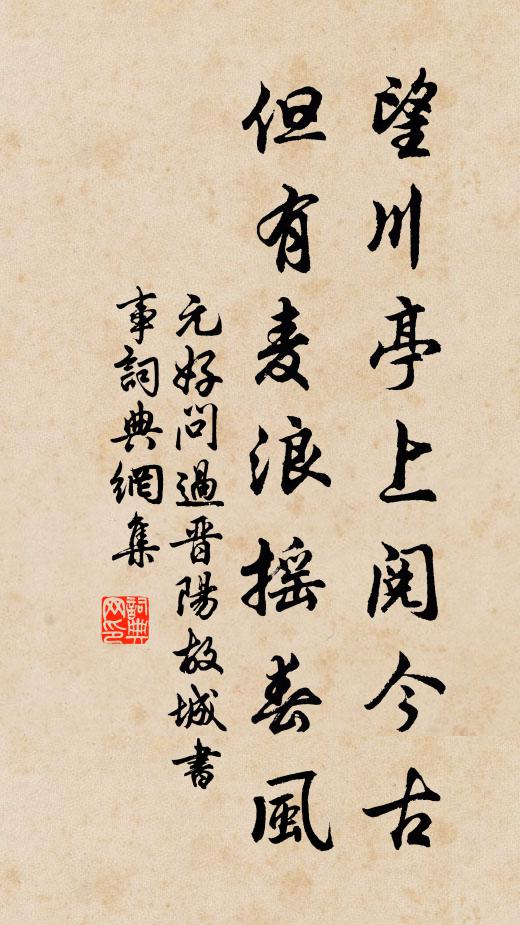 望川亭上閱今古
但有麦浪摇春風
元好问過晋陽故城書
事詞典網集
詞典
网印